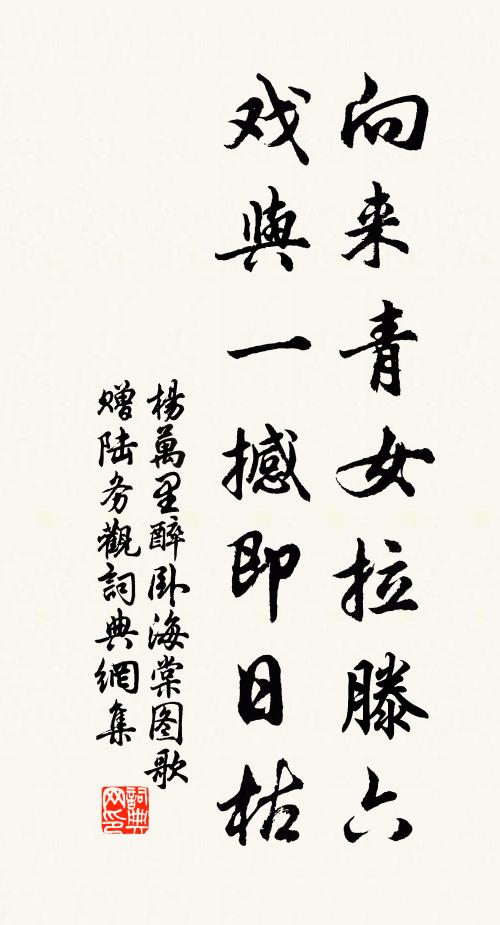 向来青女拉滕六
戏與一撼即日枯
楊萬里醉卧海棠图歌
赠陆务觀詞典網集
詞典网印